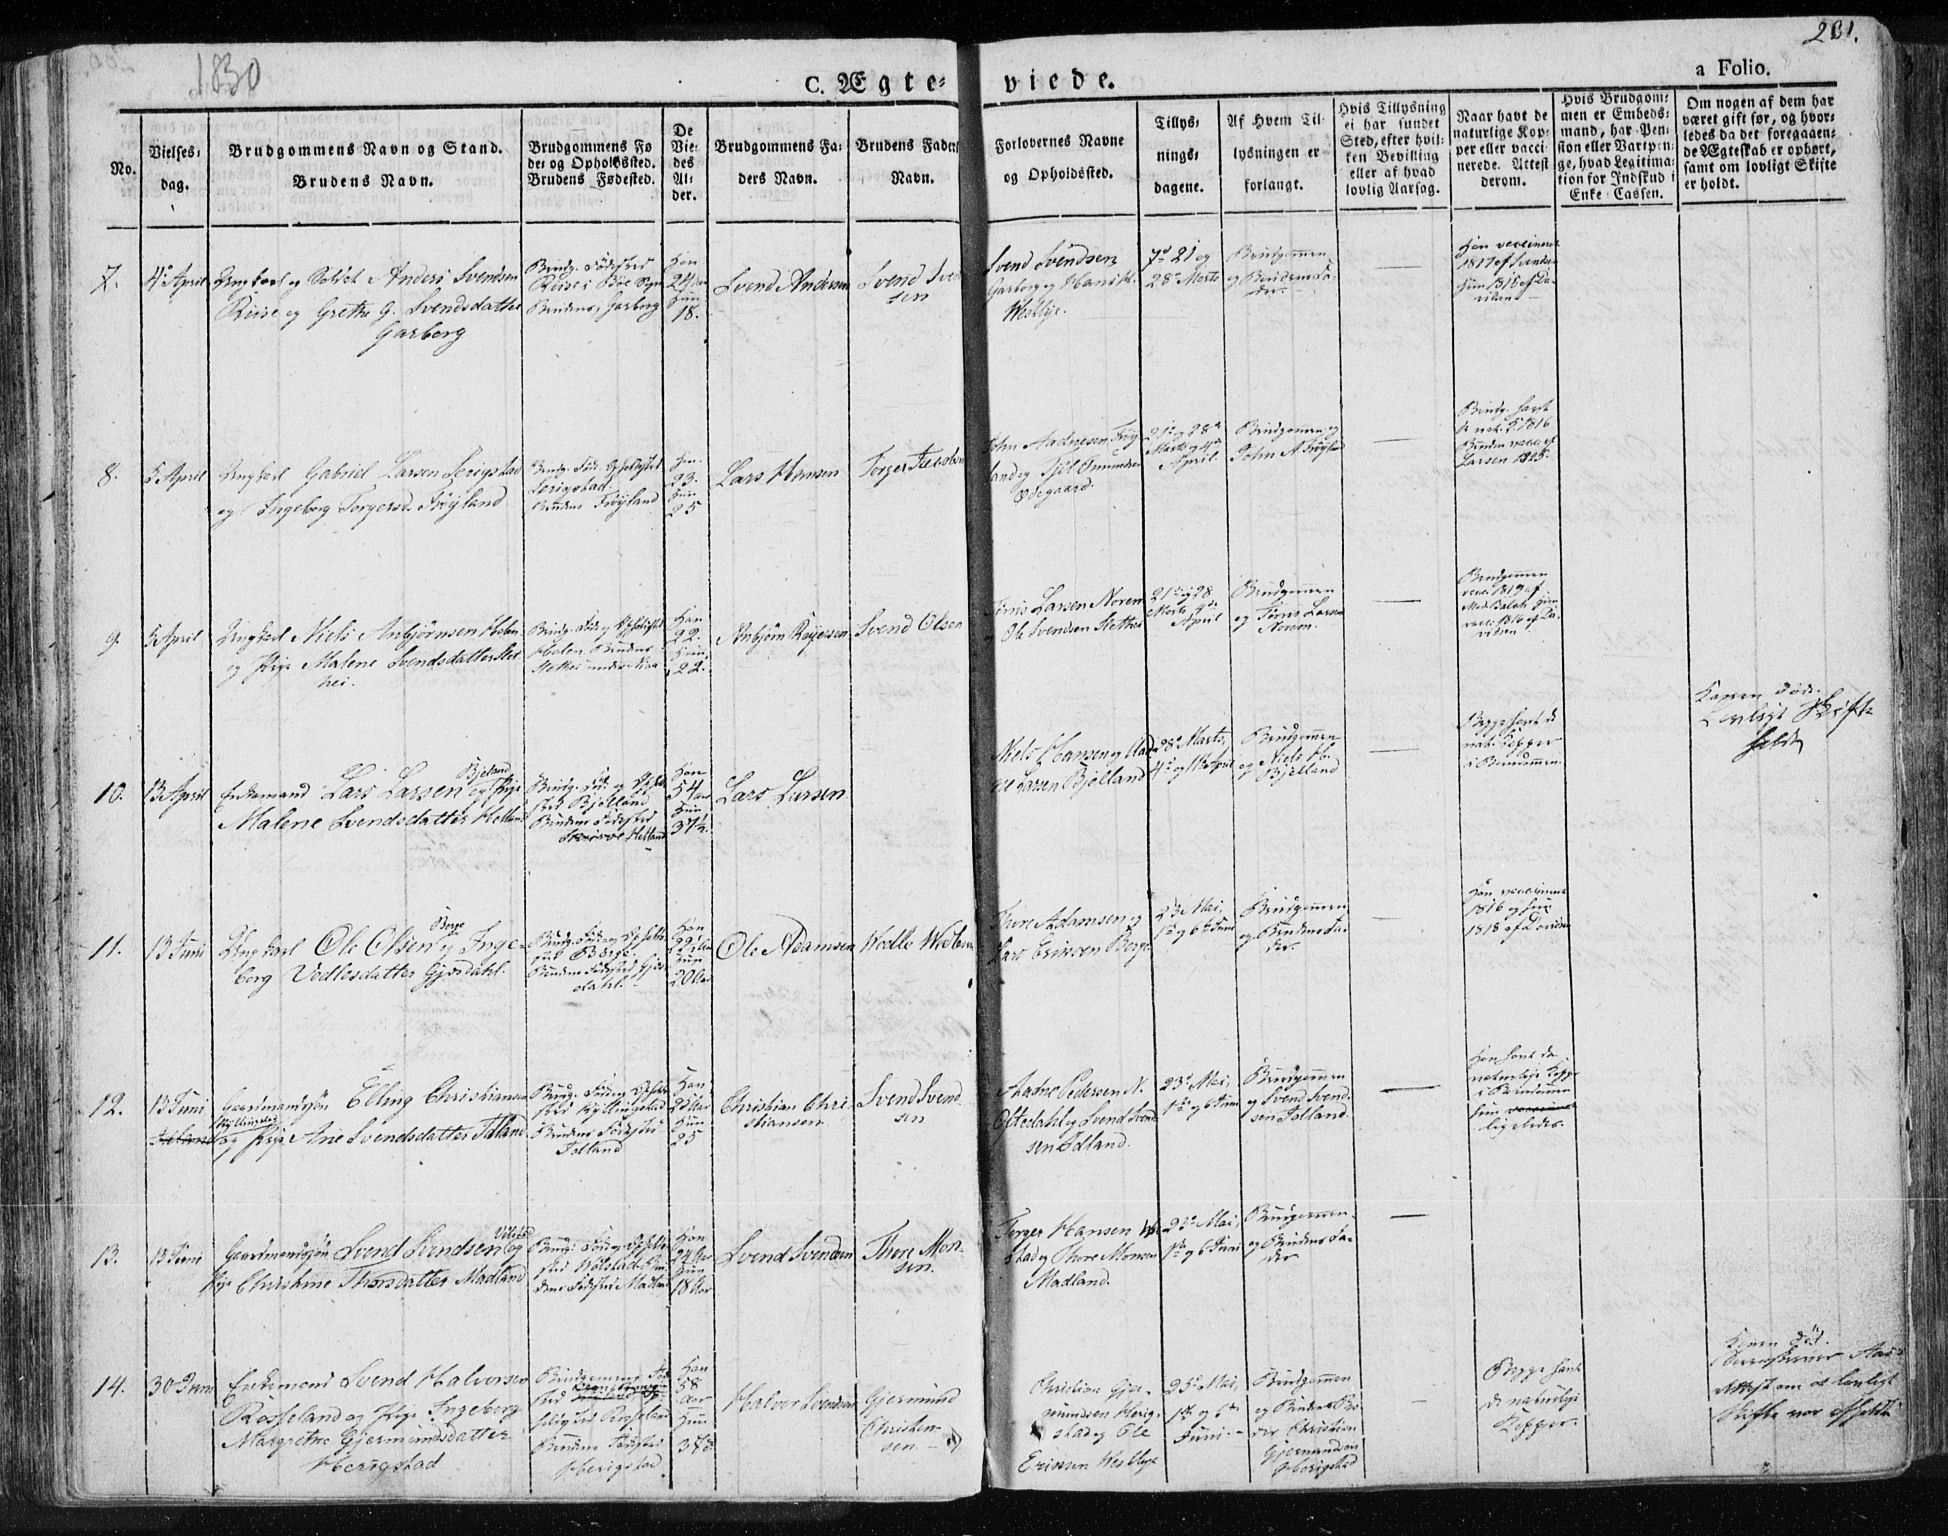 1830
201.
C. Ægte-
viede.
a Folio.
No.
Vielses-
dag.
Brudgommens Navn og Stand.
Brudens Navn.
Brudgommens Fø-
de- og Opholdssted.
Brudens Fødested.
De
Vie-
des
Al-
der.
Brudgommens Fa-
ders Navn.
Brudens Faders
Navn.
Forlovernes Navne
og Opholdssted.
Tillys-
nings-
dagene.
Af Hvem Til-
lysningen er
forlangt.
Hvis Tillysning
ei har fundet
Sted, efter hvil-
ken Bevilling
eller af hvad
lovlig Aarsag.
Naar havt de
naturlige Kop-
per eller vacci-
nerede. Attest
derom.
Hvis Brudgom-
men er Embeds-
mand, har Pen-
sion eller Vartpen-
ge, hvad Legitima-
tion for Indskud i
Enke-Cassen.
Om nogen af dem har
været gift før, og hvor-
ledes da det foregaaen-
de Ægteskab er ophørt,
samt om lovligt Skifte
er holdt.
7.
4de April
Ungkarl og Soldat Anders Svendsen
Riise og Grethe G. Svendsdatter
Garborg
Brudg. Fødested
Riise i Bøe Sogn
Brudens, Garborg
Han
24
Hun
18.
Svend Andersen
Svend Svend-
sen
Svend Svendsen
Garborg og Hans H.
Westlye.
7de 21 og
28de Marts
Brudgommen
og Brudens Fa-
der.
Han vaccineret
1817 af
Hun 1818 af Da-
vidsen
8.
5 April
Ungkarl Gabriel Larsen Lerigstad
og Ingeborg Torgersd. Frøyland
Brudg. Føde- Opholdsted
Lerigstad.
Brudens Frøyland
Han
23.
Hun
25
Lars Hansen
Torger Jacobsen
John Aadnesen Frøy-
land og Omundsen
Ødegaard.
21de og 28de
Marts og 4de
April.
Brudgommen og
John A. Frøyland
Brudg. havt
de nat. K. 1816
Bruden vacc. af
Larsen 1825.
9.
5 April
Ungkarl Niels Anbjørnsen Helen
og Pige Malene Svendsdatter Slet-
hei.
Brudg. Føde og Opholdsted
Helen Brudens
Han
22.
Hun
22.
Anbjørn Reiersen
Svend Olsen
Tønnis Larsen Norem
og Ole Svendsen Slethei
21de og 28
Marts 4de
April
Brudgommen
og Tønnis Larsen
Norem.
Brudgommen
vacc. 1819 af
Hun
vacc. 1816 af Da-
vidsen
10.
13 April
Bjeland
Enkemand Lars Larsen og Pige
Malene Svendsdatter Helland
Brudg. Føde og Ophold-
sted Bjelland
Brudens Fødested
Helland
Han
54
Hun
37½.
Lars Larsen
Niels Hansen og Aad-
ne Larsen Bjelland
28de Marts,
4de og April
Brudgommen
og Niels H.
Bjelland
Begge havt de
nat. Kopper
i Barndommen
Konen død.
Lovligt Skifte
holdt
11.
13 Juni
Berge
Ungkarl Ole Olsen og Inge-
borg Vedlesdatter Gjesdahl.
Brudg. Føde og Ophold-
sted Berge.
Brudens Fødested Gjes-
dahl.
Han
22 Aar
Hun
20 Aar
Ole Adamsen
Wedle Wedlesen
Thore Adamsen og
Lars Ericksen Berge
23 Mai,
1ste og 6te Juni
Brudgommen
og Brudens Fa-
der.
Han vaccineret
1816 og hun
1818 af Davidsen
12.
13 Juni
Gaardmandssøn Elling Christiansen
Kyllingstad
og Pige Ane Svendsdatter Fotland
Brudg. Føde og Ophold-
sted Kyllingstad
Brudens Fødested
Fotland
Han
25 Aar
Hun
25
Christian Chri-
stiansen
Svend Svend-
sen
Aadne Pedersen N.
Oftedahl og Svend Svend-
sen Edland.
23de Mai,
1ste og 6te Juni
Brudgommen
og Svend Svend-
sen Fotland.
Han havt de
naturlige Kopper
i Barndommen
hun vaccineret
ligeledes.
13.
13 Juni
Gaardmandssøn Svend Svendsen og
Pige Christine Thoresdatter Madland
Brudg. Føde og Ophold-
sted Ru-
dens Fødested Madland
Han
24 Aar
Hun
18 Aar
Svend Svendsen
Thore Mon-
sen.
Torger Hansen
stad og Thore Monsen
Madland.
23de Mai,
1ste og 6 Juni
Brudgommen
og Brudens Fa-
der
14.
30 Juni
Enkemand Svend Halvorsen
Rosseland og Pige Ingeborg
Margrethe Gjermundsdatter
Herigstad
Brudgommens Fø-
sted
Rosseland
Brudens Fødested
Herigstad
Han
58
Aar
Hun
37½
Halvor Svendsen
Gjermund
Christen-
sen.
Christian Gjer-
mundsen Herig-
stad og Ole
Ericksen Westlye
23de Mai,
1ste og 6te
Juni
Brudgommen
og Brudens Bro-
der Christian
Gjermundsen
Herigstad
Begge havt
de naturlige
Kopper.
Konen død.
Attest om at lovligt
Skifte var afholdt